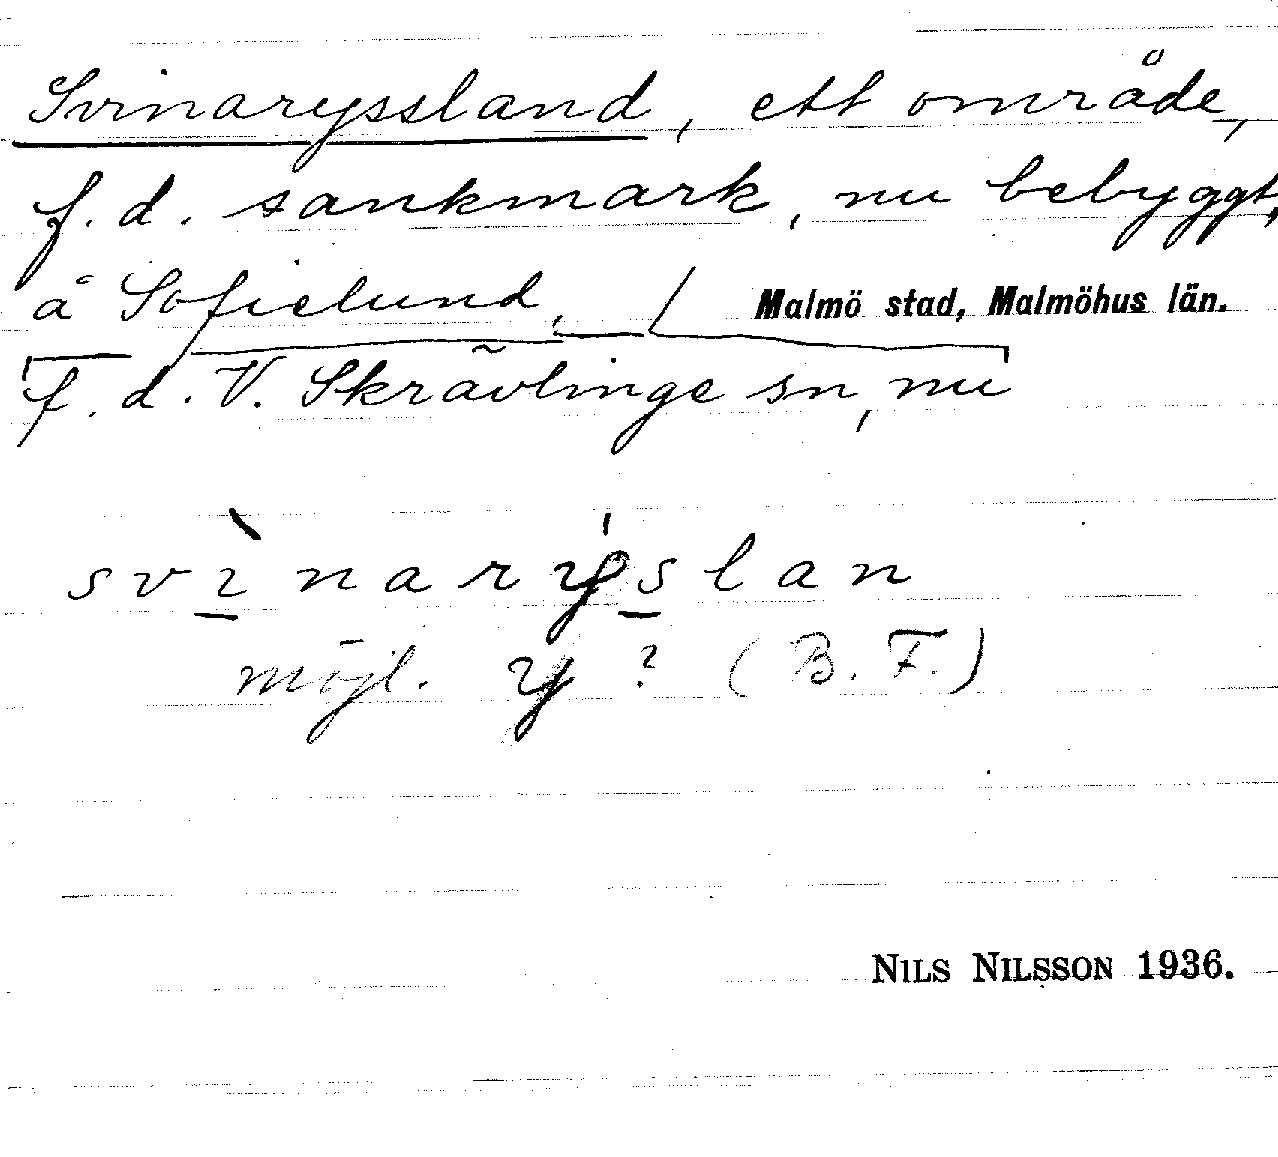 Svinaryssland, ett område,
f.d. sankmark, nu bebyggt,
å Sofielund, / Malmö stad, Malmöhus län.
f.d. V. Skrävlinge sn, nu
svìnarýslan
möjl. y? (B.F.)
NILS NILSSON 1936.